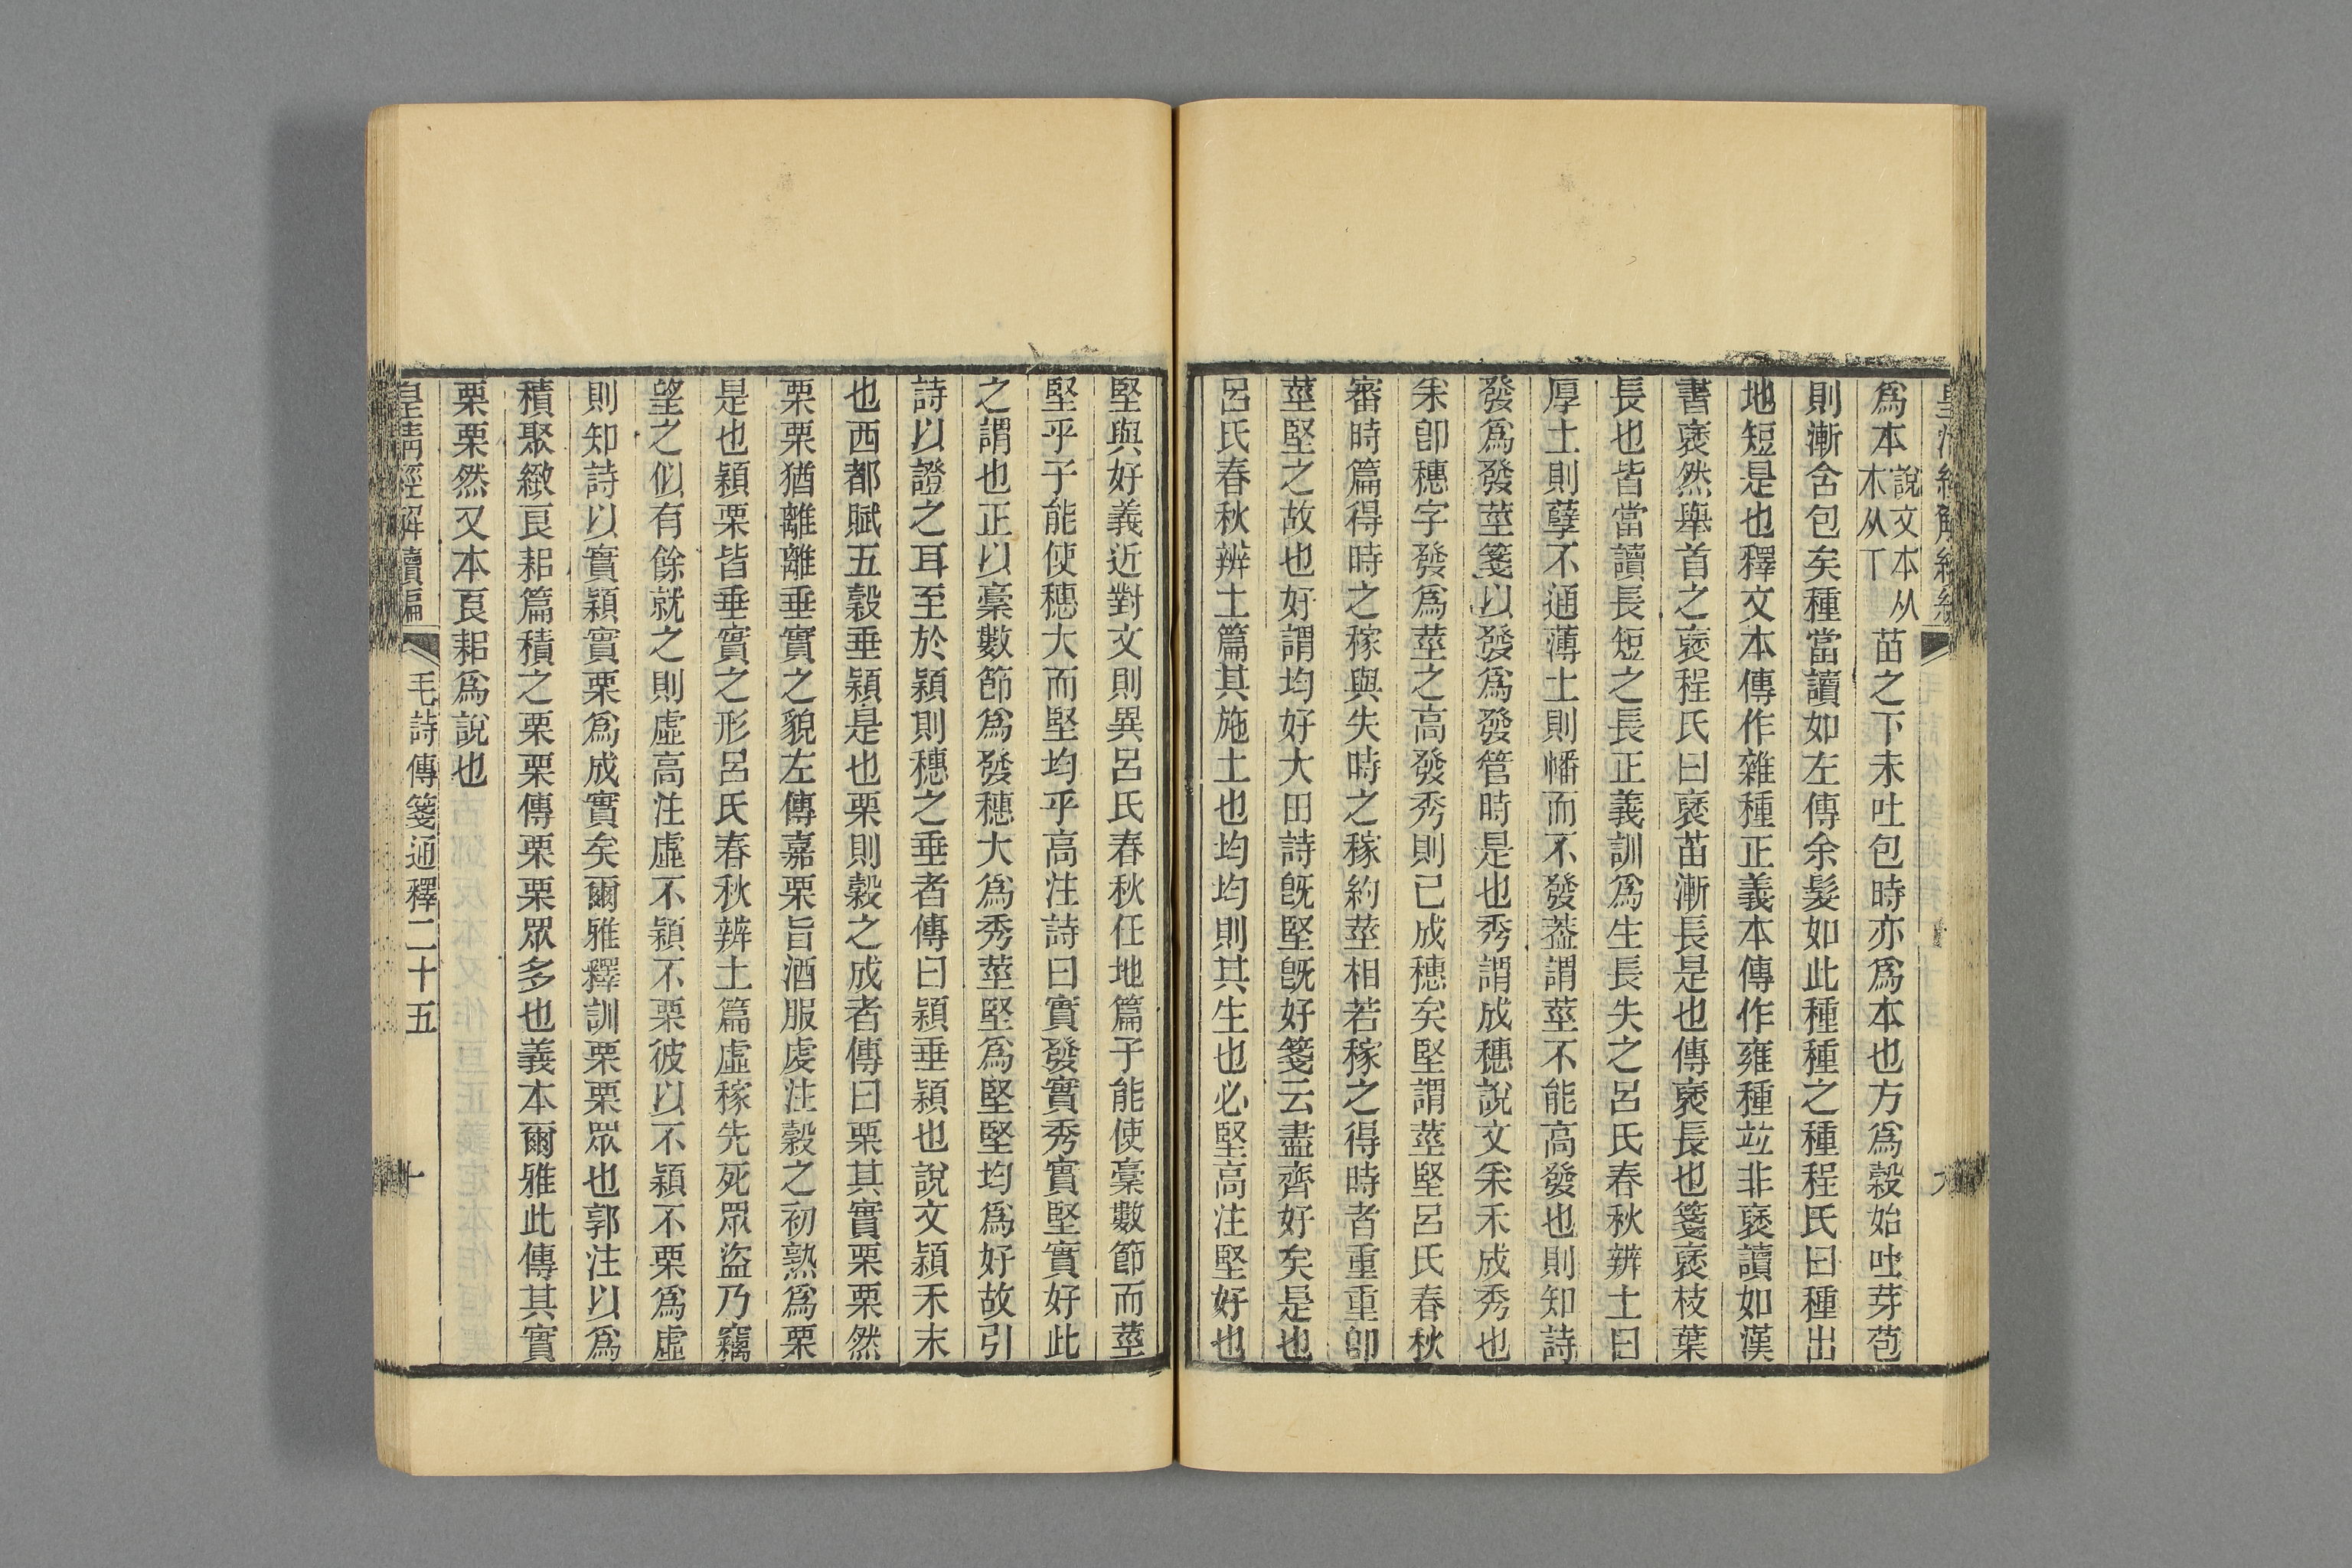 爲本說文本从木从丅苗之下未吐包時亦爲本也方爲穀始吐芽苞
則漸舍包矣種當讀如左傳余髮如此種種之種程氏曰種出
地短是也釋文本傳作雜種正義本傳作雍種竝非褎讀如漢
書褎然舉首之褎程氏曰褎苗漸長是也傳褎長也箋褎枝葉
長也皆當讀長短之長正義訓爲生長失之呂氏春秋辨土曰
厚土則孽不通薄土則幡而不發葢謂莖不能高發也則知詩
發爲發莖箋以發爲發管時是也秀謂成穗說文采禾成秀也
采卽穗字發爲莖之高發秀則已成穗矣堅謂莖堅呂氏春秋
審時篇得時之稼與失時之稼約莖相若稼之得時者重重卽
莖堅之故也好謂均好大田詩旣堅旣好箋云盡齊好矣是也
呂氏春秋辨土篇其施土也均均則其生也必堅高注堅好也
堅與好義近對文則異呂氏春秋任地篇子能使稾數節而莖
堅乎子能使穗大而堅均乎高注詩曰實發實秀實堅實好此
之謂也正以稾數節爲發穗大爲秀莖堅爲堅堅均爲好故引
詩以證之耳至於穎則穗之垂者傳曰穎垂穎也說文穎禾末
也西都賦五穀垂穎是也栗則穀之成者傳曰栗其實栗栗然
栗栗猶離離垂實之貌左傳嘉栗旨酒服虔注穀之初熟爲栗
是也穎栗皆垂實之形呂氏春秋辨土篇虛稼先死眾盜乃竊
望之似有餘就之則虛高注虛不穎不栗彼以不穎不栗爲虛
則知詩以實穎實栗爲成實矣爾雅釋訓栗栗眾也郭注以爲
積聚緻㠭耜篇積之栗栗傳栗栗眾多也義本爾雅此傳其實
栗栗然又本㠭耜爲說也
皇清經解續編 毛詩傳箋通釋二十五 十